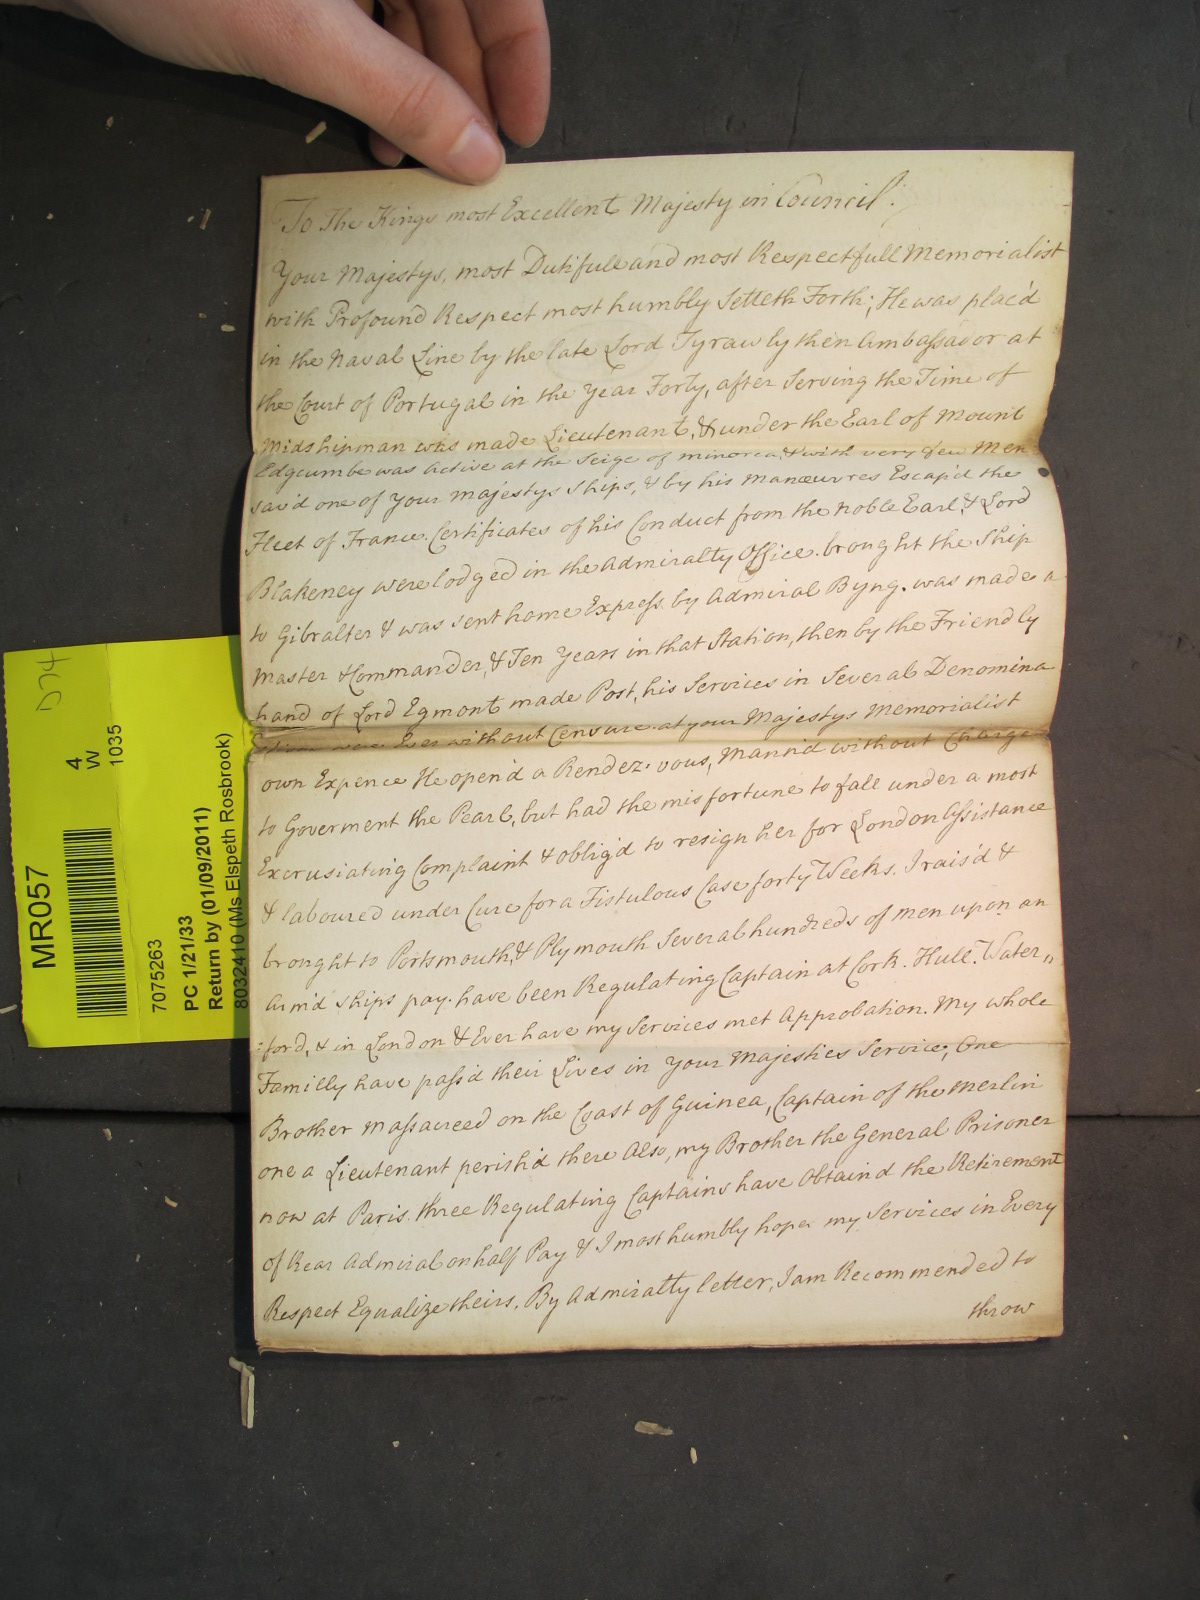 To The Kings most Excellent Majesty in Council.
Your Majestys, most Dutifull and most Respectfull Memorialist
with Profound Respect most humbly Setteth Forth; He was plac'd
in the Naval Line by the late Lord Tyrawly then Ambassador at
the Court of Portugal in the Year Forty, after Serving the Time of
Midshipman was made Lieutenant, & under the Earl of Mount
Edgcumbe was active at the Seige of minorca, & with very few Men
sav'd one of Your Majestys Ships, & by his Manœuvres Escap'd the
Fleet of France. Certificates of his Conduct from the Noble Earl & Lord
Blakeney were lodged in the Admiralty Office. brought the Ship
to Gibralter & was sent home Express by Admiral Byng. was made a
Master & Commander, & Ten Years in that Station, then by the Friendly
hand of Lord Egmont made Post, his Services in Several Denomina
were Ever without Censure. at your Majestys Memorialist
own Expence He open'd a Rendez-vous, Mann'd without Charge
to Goverment the Pearl, but had the misfortune to fall under a most
Excrusiating Complaint & oblig'd to resign her for London Assistance
& laboured under Cure for a Fistulous Case forty Weeks. I rais'd &
brought to Portsmouth, & Plymouth Several hundreds of men upon an
arm'd ships pay. have been Regulating Captain at Cork. Hull. Water„
=ford, & in London & Ever have my Services met Approbation. My whole
Familly have pass'd their Lives in Your Majesties Service, One
Brother Massacreed on the Coast of Guinea, Captain of the Merlin
one a Lieutenant perish'd there Also, my Brother the General Prisoner
now at Paris. three Regulating Captains have Obtain'd the Retirement
of Rear Admiral on half Pay & I most humbly hope my Services in Every
Respect Equalize theirs. By Admiralty letter, I am Recommended to
throw
D74
MR057
4
W
1035
7075263
PC 1/21/33
Return by (01/09/2011)
8032410 (Ms Elspeth Rosbrook)